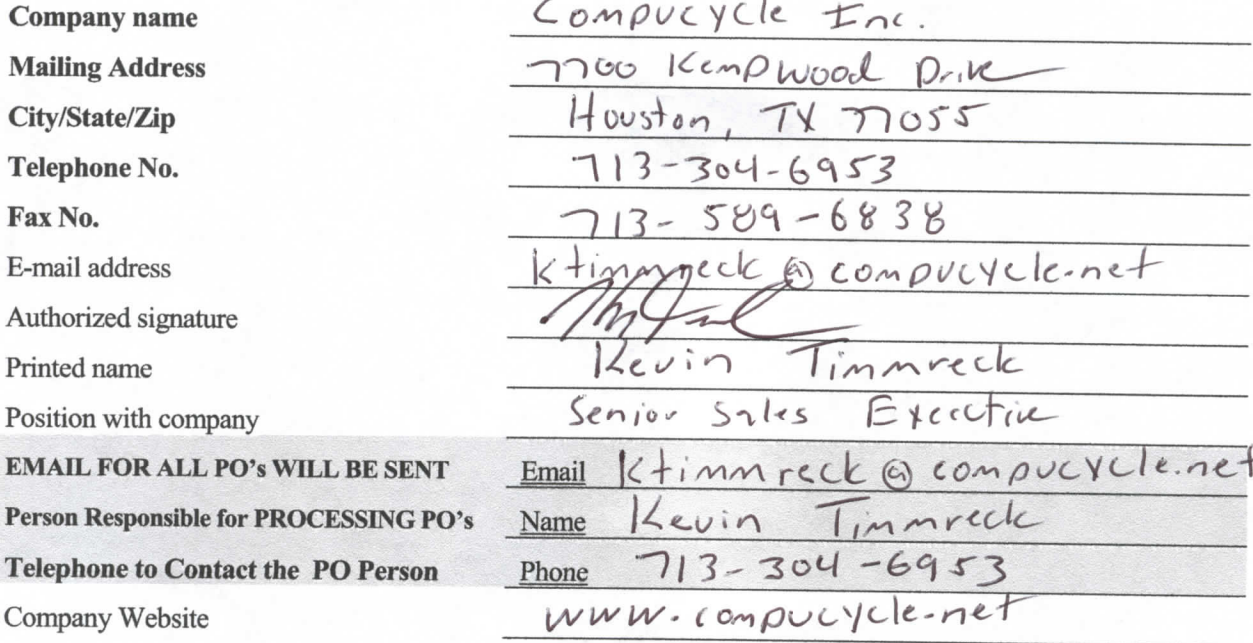 Company name Compucycle Inc.
Mailing Address 7700 Kempwood Drive
City/State/Zip Houston, TX 77055
Telephone No. 713-304-6953
Fax No. 713-589-6838
E-mail address ktimmreck@compucycle.net
Authorized signature
Printed name Kevin Timmreck
Position with company Senior Sales Executive
EMAIL FOR ALL PO's WILL BE SENT Email ktimmreck@compucycle.net
Person Responsible for PROCESSING PO's Name Kevin Timmreck
Telephone to Contact the PO Person Phone 713-304-6953
Company Website www.compucycle.net